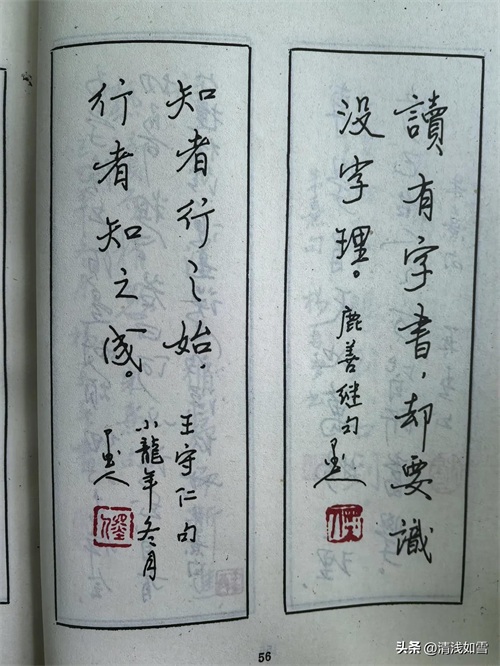 讀有字書，却要識
没字理。
鹿善继句
知者行之始，
行者知之成。
王守仁句
小龍年冬月
56
头条 @清浅如雪